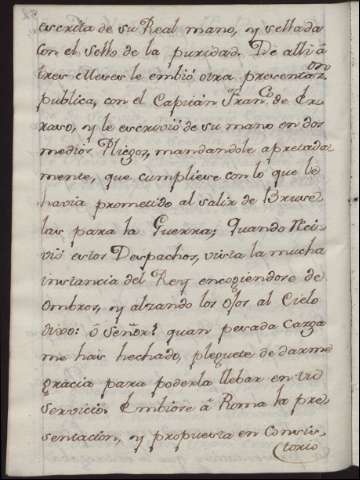 escrita de su Real mano, y sellada
con el sello de la puridad. De alli â
tres meses le embió otra presentaz.on
publica, con el Capitan Fran.co de Er
raso, y le escrivió de su mano en dos
medios Pliegos, mandandole apretada
mente, que cumpliese con lo que le
havia prometido al salir de Bruse
las para la Guerra; Quando Reci
vió estos Despachos, vista la mucha
instancia del Rey encogiendose de
Ombros, y alzando los ojos al Cielo
dixo: ô señor! quan pesada carga
me hais hechado, pleguete de darme
gracia para poderla llebar en vro
servicio. Embiose â Roma la pre
sentacion, y propuesta en Consis
torio